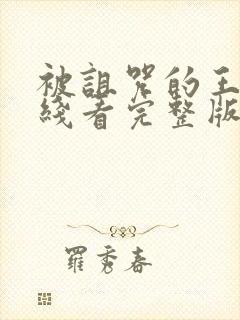 被詛咒的王
綫看完整版
羅秀春